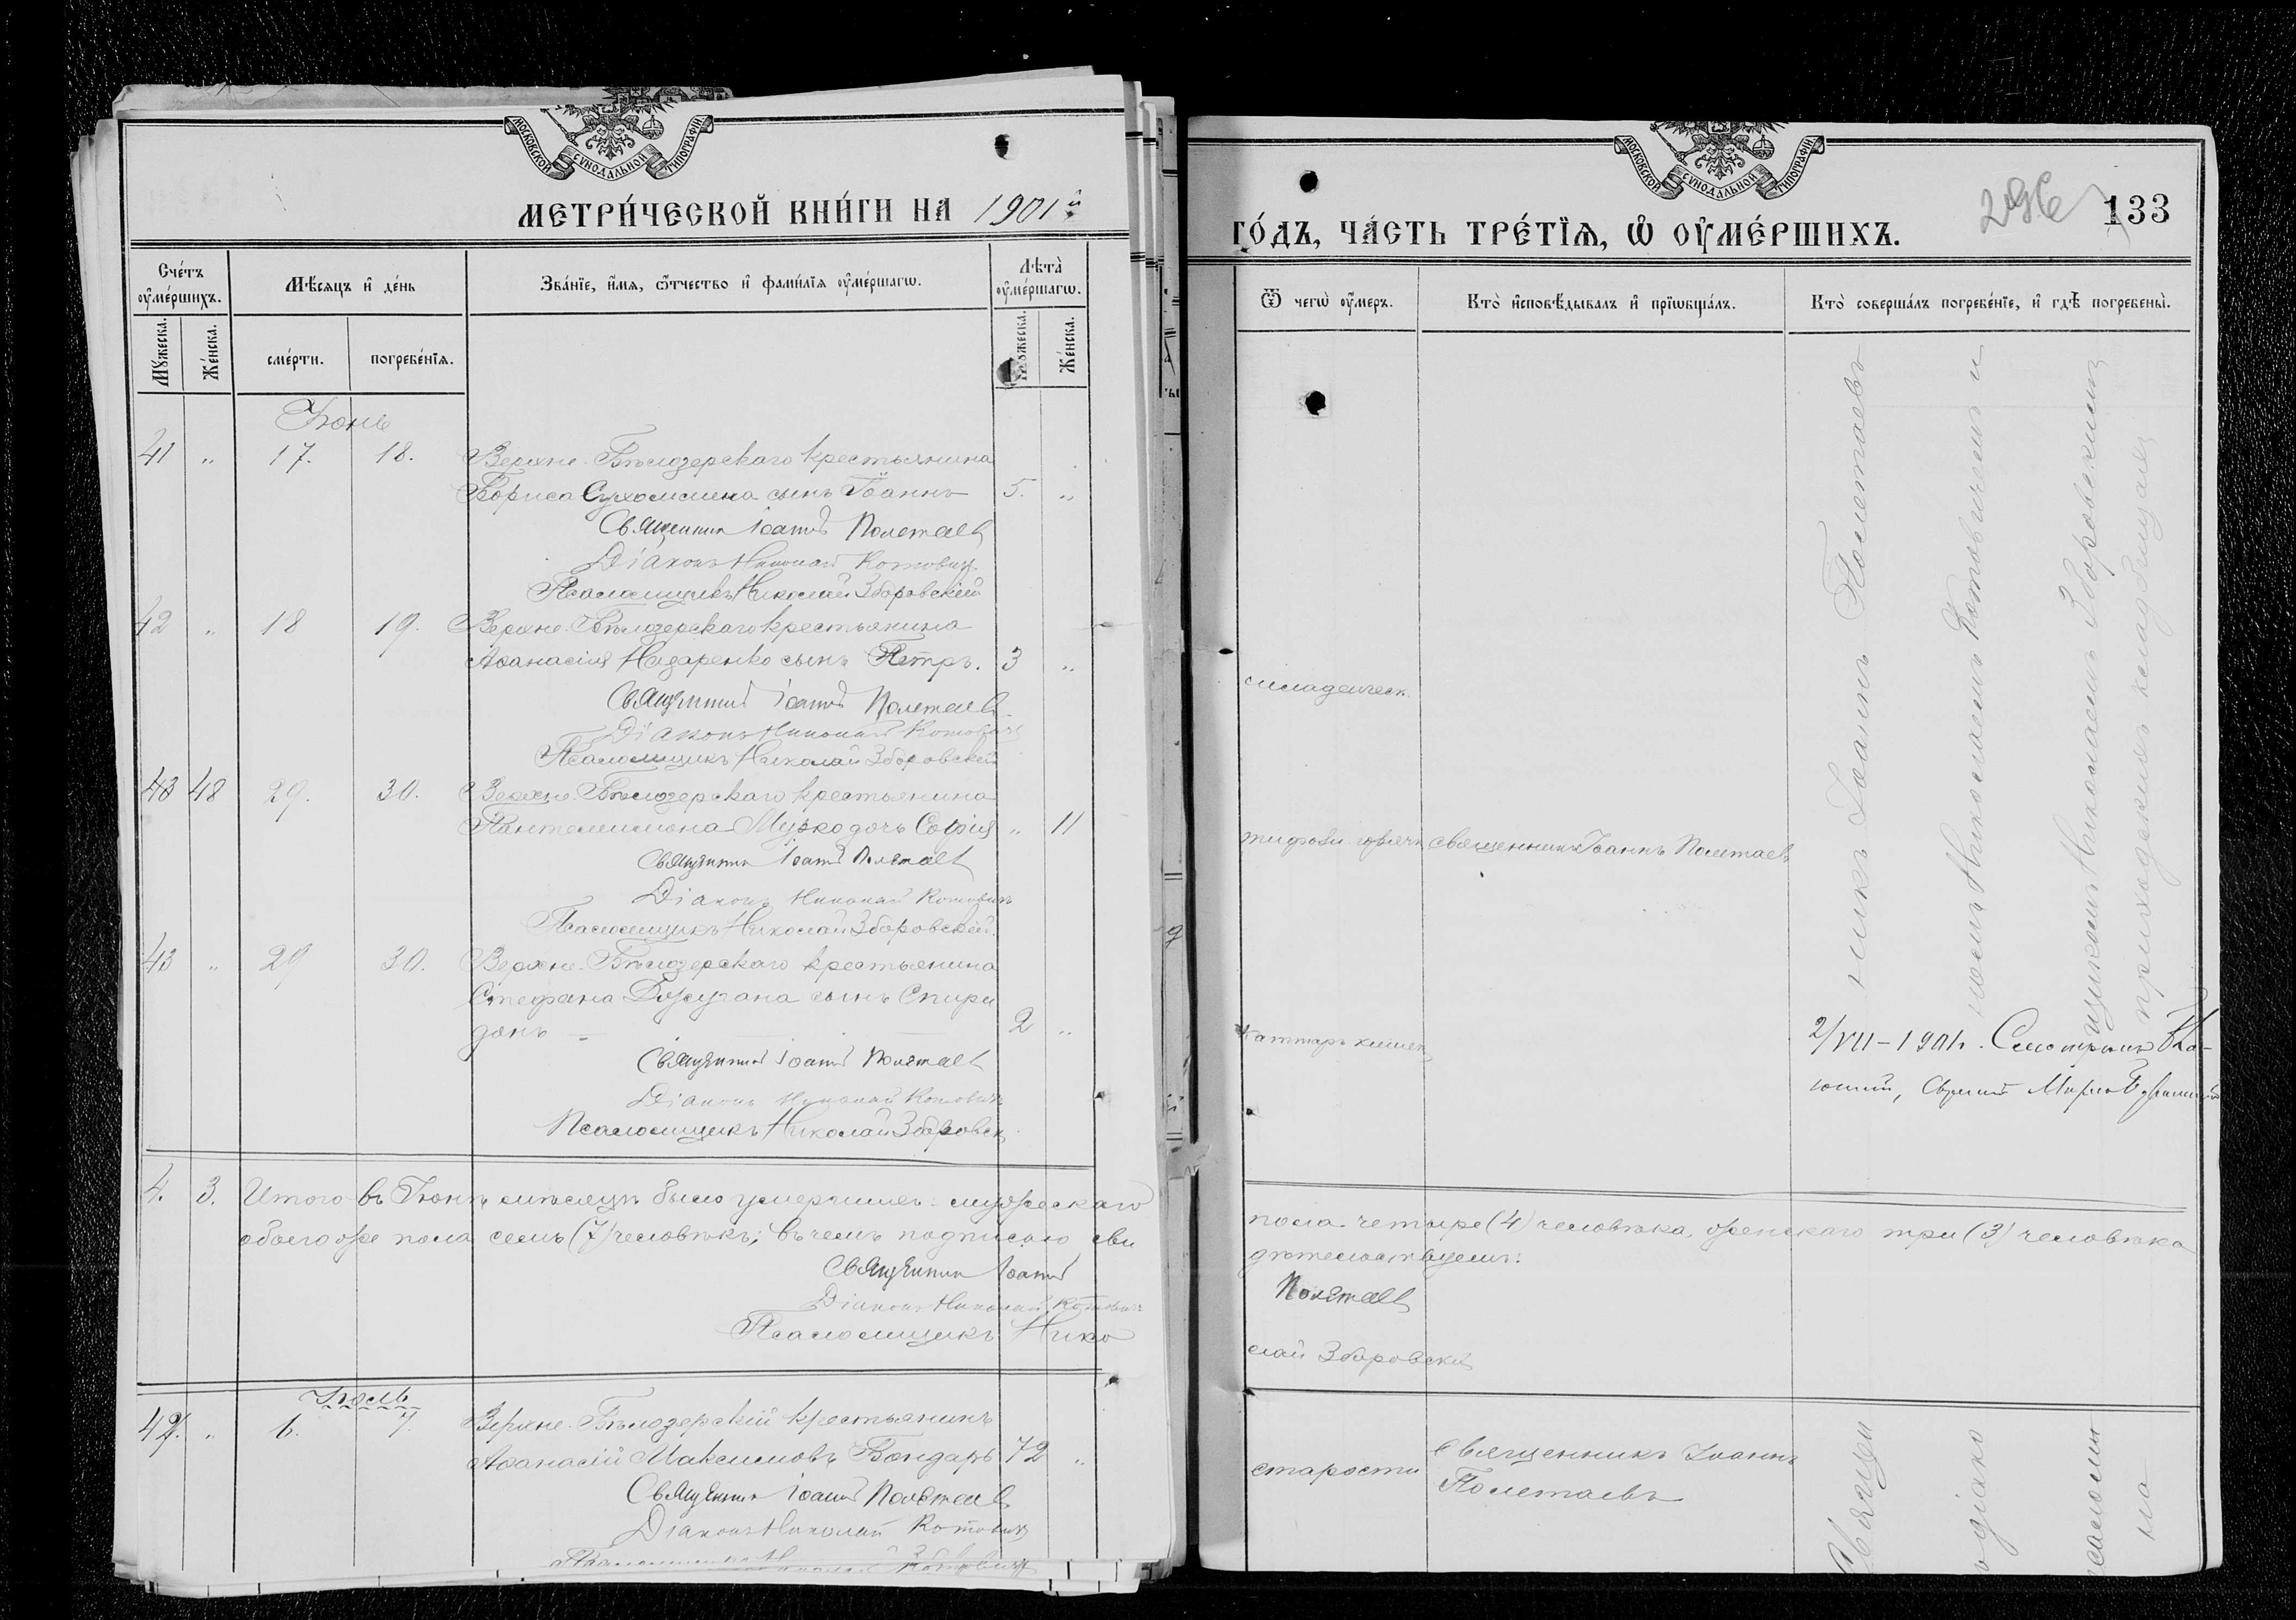 МОСКОВСКОЙ СѴНОДАЛЬНОЙ ТИПОГРАФІИ
МЕТРИ́ЧЕСКОЙ КНИ́ГИ НА 1901й
Сче́тъ оумéршихъ.
Мѣсяцъ и де́нь
Зва́нїе, и́мя, ѿтчество и фами́лїя оумéршагѡ.
Лѣта̀ оумéршагѡ.
Мꙋжеска.
Же́нска.
смéрти.
погребéнїя.
Мꙋжеска.
Же́нска.
Іюнь
41 " 17. 18. Верхне-Бѣлозерскаго крестьянина
Бориса Сухомлина сынъ Іоаннъ 5. "
Священникъ Іоаннъ Полетаевъ
Діаконъ Николай Котовичъ
Псаломщикъ Николай Здоровскій
42 " 18 19. Верхне-Бѣлозерскаго крестьянина
Аѳанасія Назаренко сынъ Петръ. 3 "
Священникъ Іоаннъ Полетаевъ
Діаконъ Николай Котовичъ
Псаломщикъ Николай Здоровскій
43 48 29. 30. Верхне-Бѣлозерскаго крестьянина
Пантелеимона дочь Софія " 11
Священникъ Іоаннъ Полетаевъ
Діаконъ Николай Котовичъ
Псаломщикъ Николай Здоровскій
43 " 29 30. Верхне-Бѣлозерскаго крестьянина
Стефана сынъ Спири
донъ 2 "
Священникъ Іоаннъ Полетаевъ
Діаконъ Николай Котовичъ
Псаломщикъ Николай Здоровск
4. 3. Итого въ Іюнѣ мѣсяцѣ было умершихъ мужескаго
обоего же пола семь (7) человѣкъ; въ чемъ подписомъ сви
Священникъ Іоаннъ
Діаконъ Николай Котовичъ
Псаломщикъ Нико
Іюль
42. " 6. 7. Верхне-Бѣлозерскій крестьянинъ
Аѳанасій Максимовъ Бондарь 72 "
Священникъ Іоаннъ Полетаевъ
Діаконъ Николай Котовичъ
МОСКОВСКОЙ СѴНОДАЛЬНОЙ ТИПОГРАФІИ
133
ГО́ДЪ, ЧА́СТЬ ТРЕ́ТЇЯ, Ѡ ОУМЕ́РШИХЪ.
Ѿ чегѡ̀ оу́меръ.
Кто̀ и҆сповѣ́дывалъ и҆ прїѡбща́лъ.
Кто̀ соверша́лъ погребе́нїе, и҆ гдѣ̀ погребены̀.
никъ Іоаннъ Полетаевъ
номъ Николаемъ Котовичемъ и
щикомъ Николаемъ Здоровскимъ
приходскомъ кладбищѣ
младенческ.
тифозн горячк священникъ Іоаннъ Полетаевъ
Каттаръ кишек
2/VII-1901 г. Смотрѣлъ
пола четыре (4) человѣка, женскаго три (3) человѣка
дѣтельствуемъ:
Полетаевъ
лай Здоровскій
старости
Священникъ Іоаннъ
Полетаевъ
Священ
діако
псалом
на